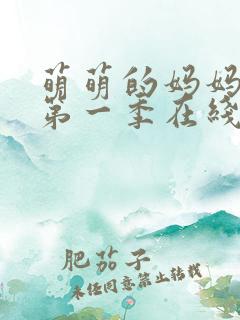 萌萌的妈妈
第一季在线
肥茄子
未经同意禁止转载